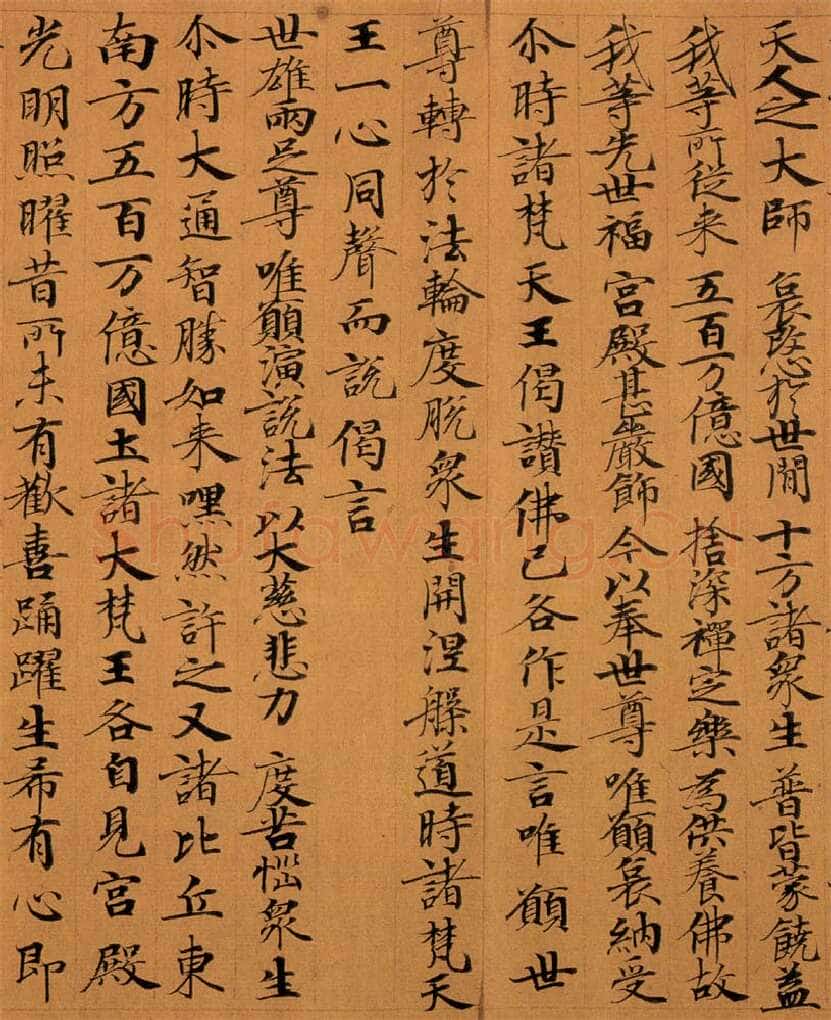 天人之大師 哀愍於世間 十方諸衆生 普皆蒙饒益
我等所從来 五百万億國 捨深禪定樂 為供養佛故
我等先世福 宮殿甚嚴飾 今以奉世尊 唯願哀納受
尒時諸梵天王偈讚佛已各作是言唯願世
尊轉於法輪度脱衆生開涅槃道時諸梵天
王一心同聲而説偈言
世雄兩足尊 唯願演説法 以大慈悲力 度苦惱衆生
尒時大通智勝如来嘿然許之又諸比丘東
南方五百万億國土諸大梵王各自見宮殿
光明照曜昔所未有歡喜踊躍生希有心即
shufawang.cn